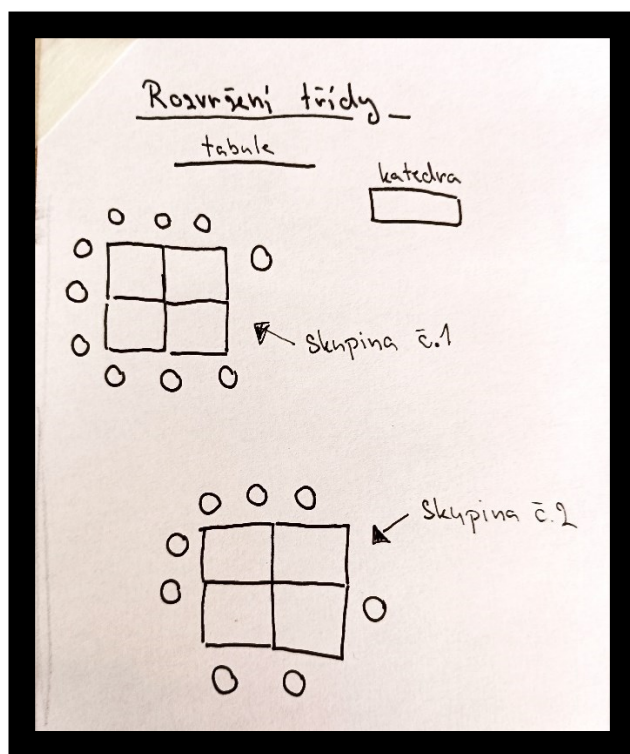 Rozvržení třídy
tabule
katedra
skupina č.1
skupina č.2